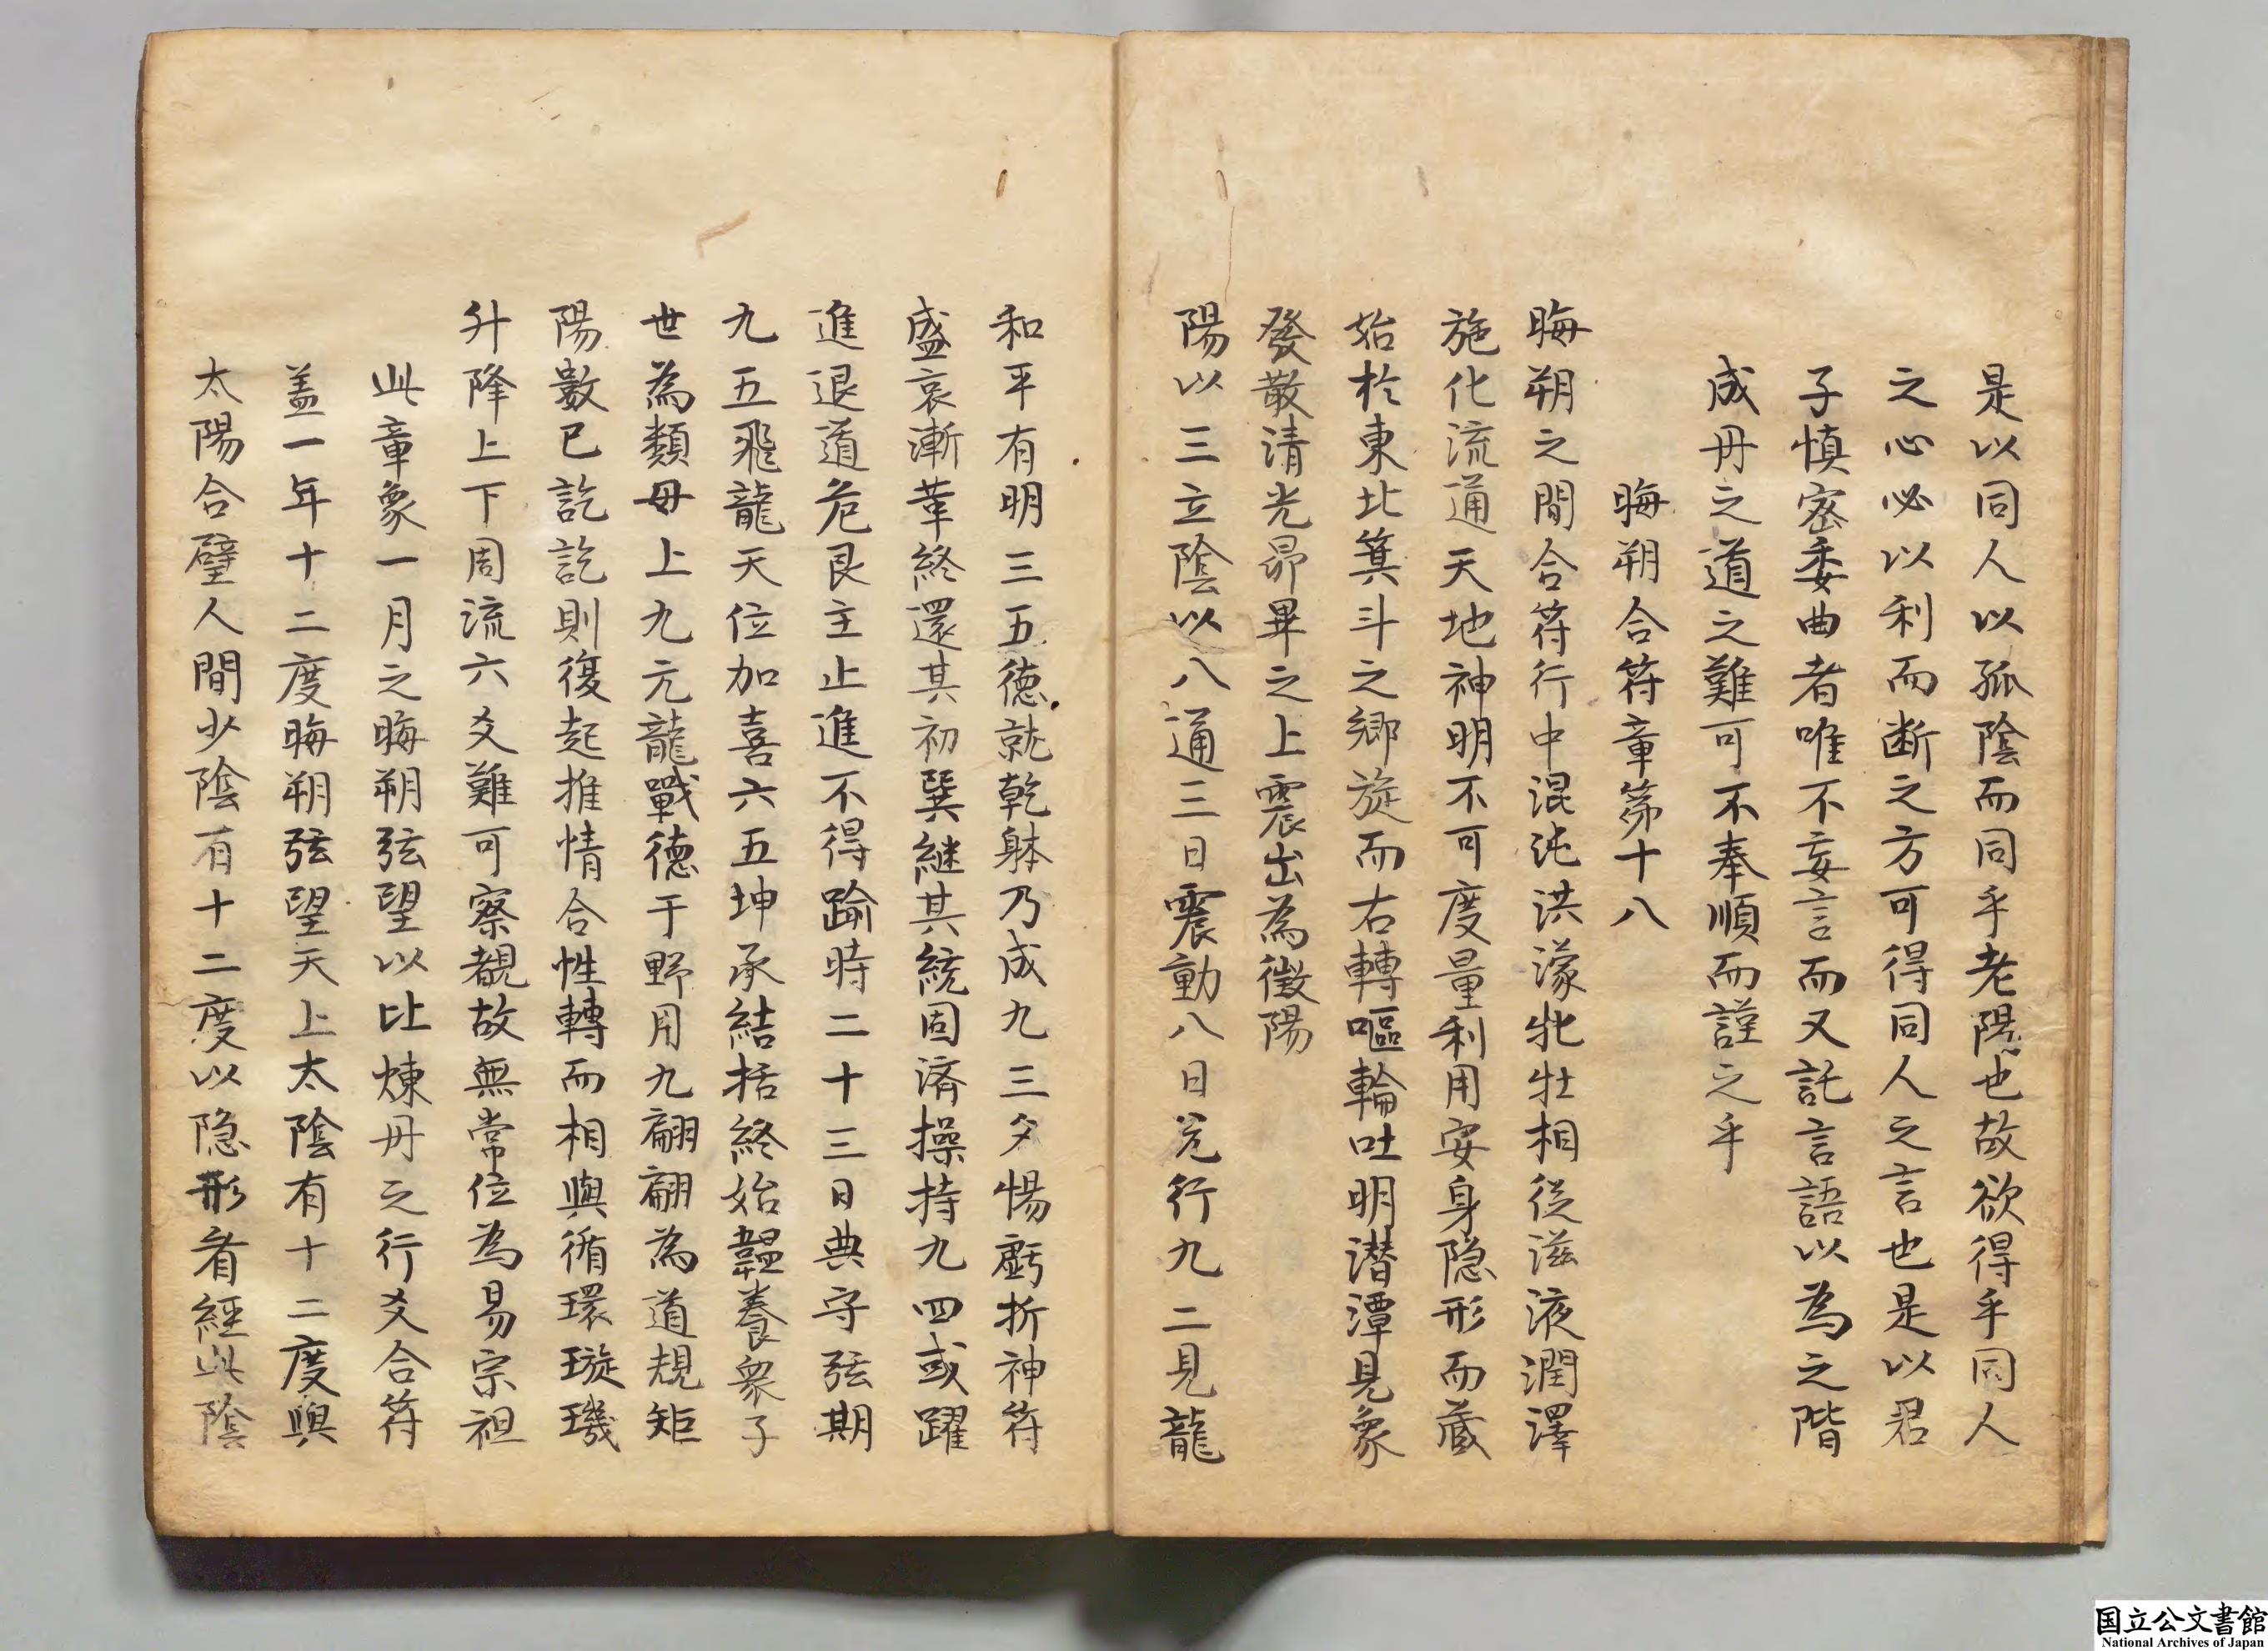 是以同人以孤陰而同乎老陽也故欲得乎同人
之心必以利而断之方可得同人之言也是以君
子慎密委曲者唯不妄言而又託言語以為之階
成丹之道之難可不奉順而謹之乎
晦朔合符章第十八
晦朔之間合符行中混沌洪濛牝牡相従滋液潤澤
施化流通天地神明不可度量利用安身隐形而蔵
始於東北箕斗之郷旋而右轉嘔輪吐明潜潭見象
發散清光昴畢之上震出為徴陽
陽以三立陰以八通三日震動八日兊行九二見龍
和平有明三五徳就乾躰乃成九三夕惕虧折神符
盛衰漸革終還其初巽継其統固済操持九四或躍
進退道危艮主止進不得踰時二十三日典守弦期
九五飛龍天位加喜六五坤承結括終始韞養衆子
世為類母上九亢龍戰徳于野用九翩翩為道規矩
陽數已訖訖則復起推情合性轉而相與循環璇璣
升降上下周流六爻難可察覩故無常位為易宗祖
此章象一月之晦朔弦望以比煉丹之行爻合符
盖一年十二度晦朔弦望天上太陰有十二度與
太陽合璧人間少陰有十二度以隐形看經此陰
国立公文書館
National Archives of Japan